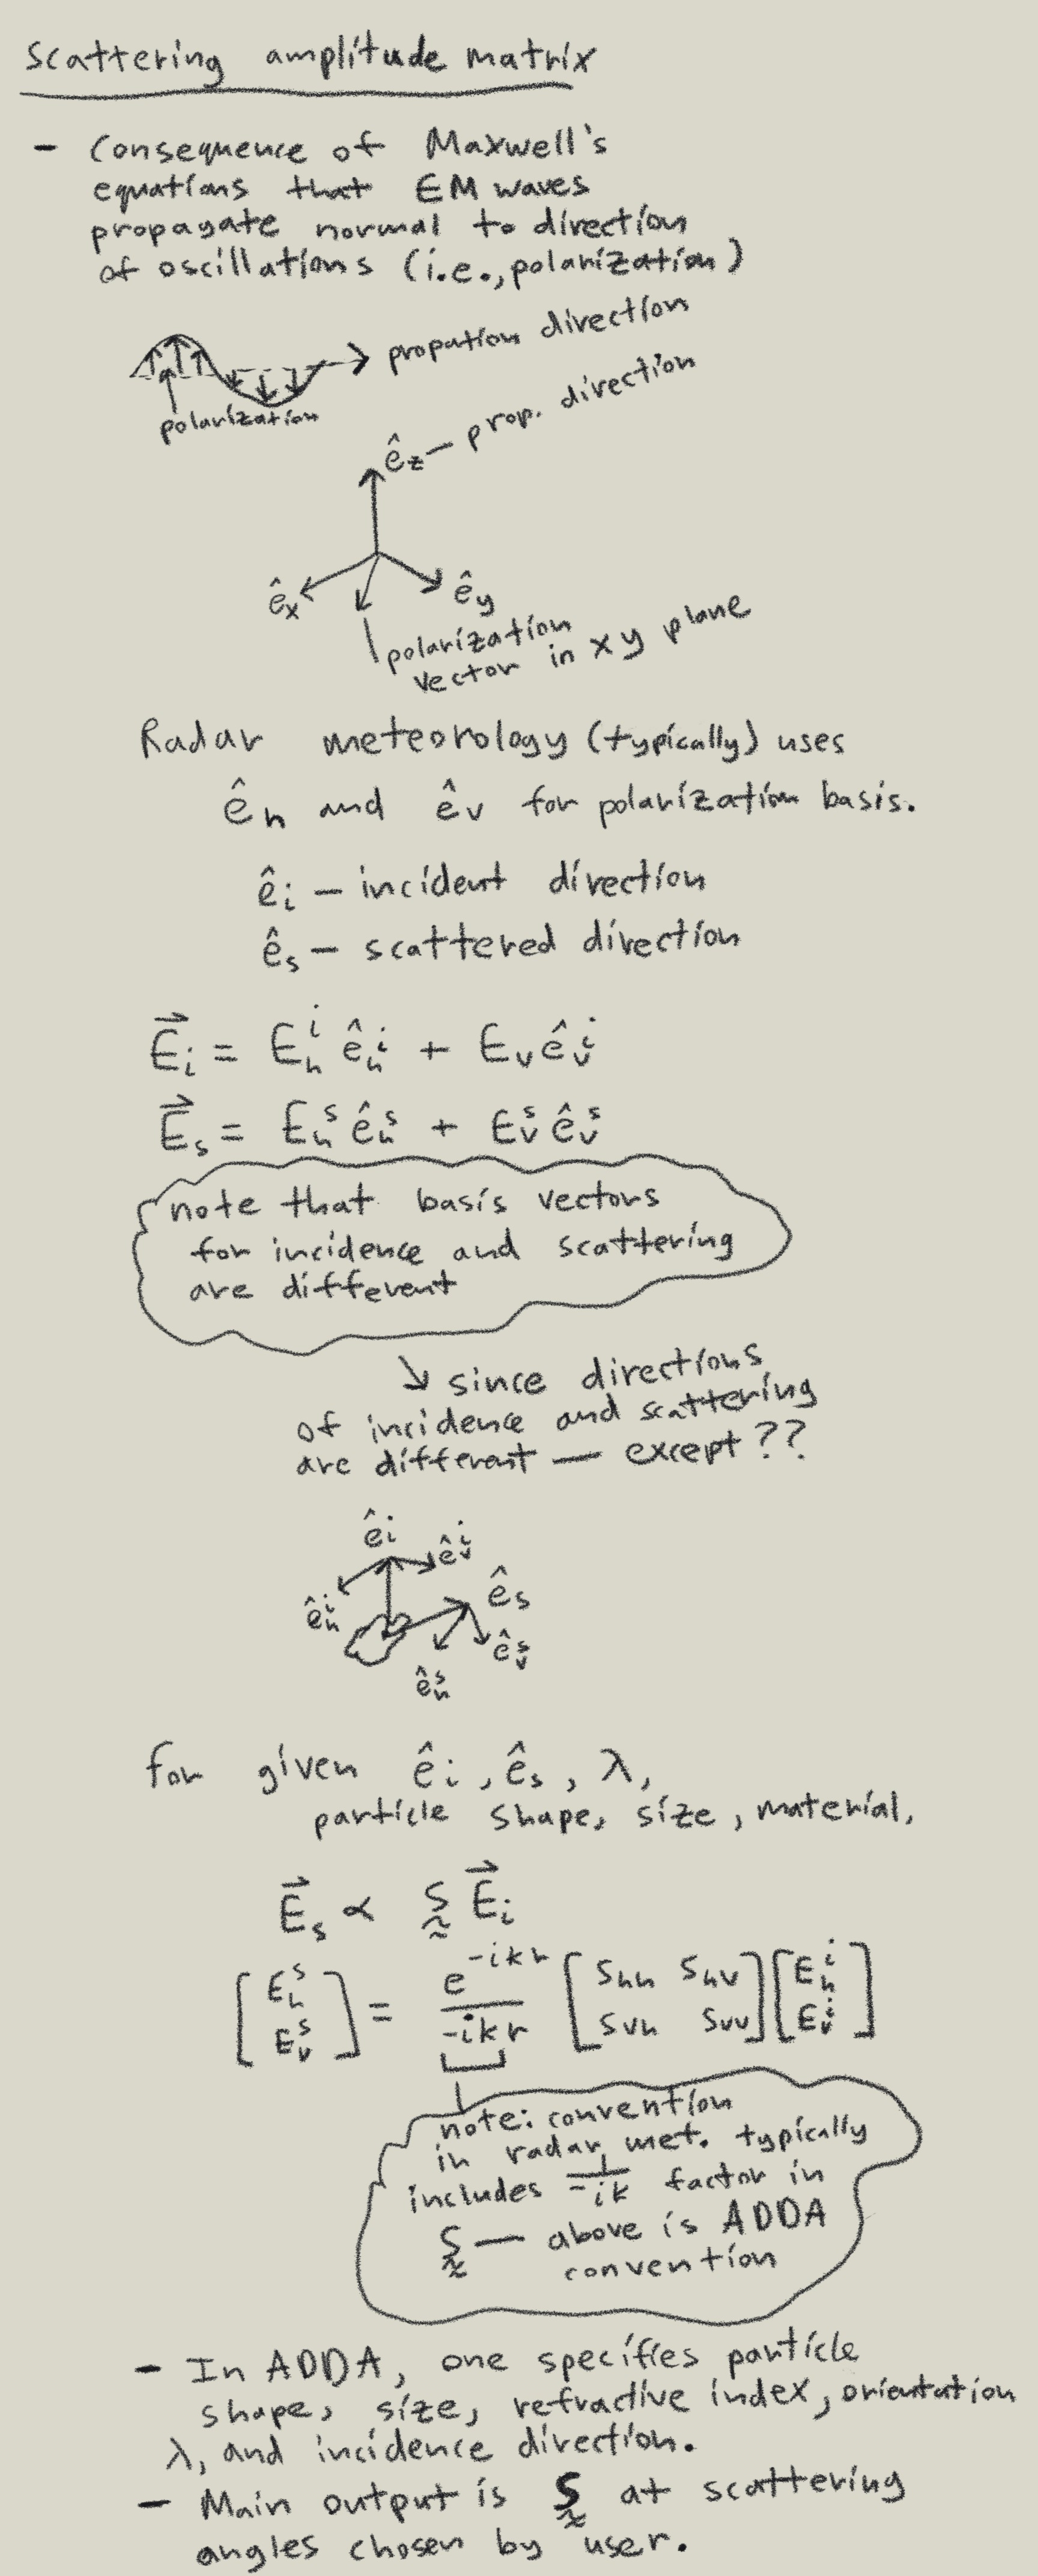 Scattering amplitude matrix
- Consequence of Maxwell's
equations that EM waves
propagate normal to direction
of oscillations (i.e., polarization)
propation direction
polarization
ê_z — prop. direction
ê_x
ê_y
polarization
vector in xy plane
Radar meteorology (typically) uses
ê_h and ê_v for polarization basis.
ê_i — incident direction
ê_s — scattered direction
E⃗_i = E_h^i ê_h^i + E_v ê_v^i
E⃗_s = E_h^s ê_h^s + E_v^s ê_v^s
note that basis vectors
for incidence and scattering
are different
↘ since directions
of incidence and scattering
are different — except ??
ê_i
ê_v^i
ê_h^i
ê_s
ê_v^s
ê_h^s
for given ê_i, ê_s, λ,
particle shape, size, material,
E⃗_s ∝ S E⃗_i
[E_h^s; E_v^s] = e^{-ikr}/(-ikr) [S_hh S_hv; S_vh S_vv] [E_h^i; E_v^i]
note: convention
in radar met. typically
includes 1/(-ik) factor in
S — above is ADDA
convention
- In ADDA, one specifies particle
shape, size, refractive index, orientation
λ, and incidence direction.
- Main output is S at scattering
angles chosen by user.